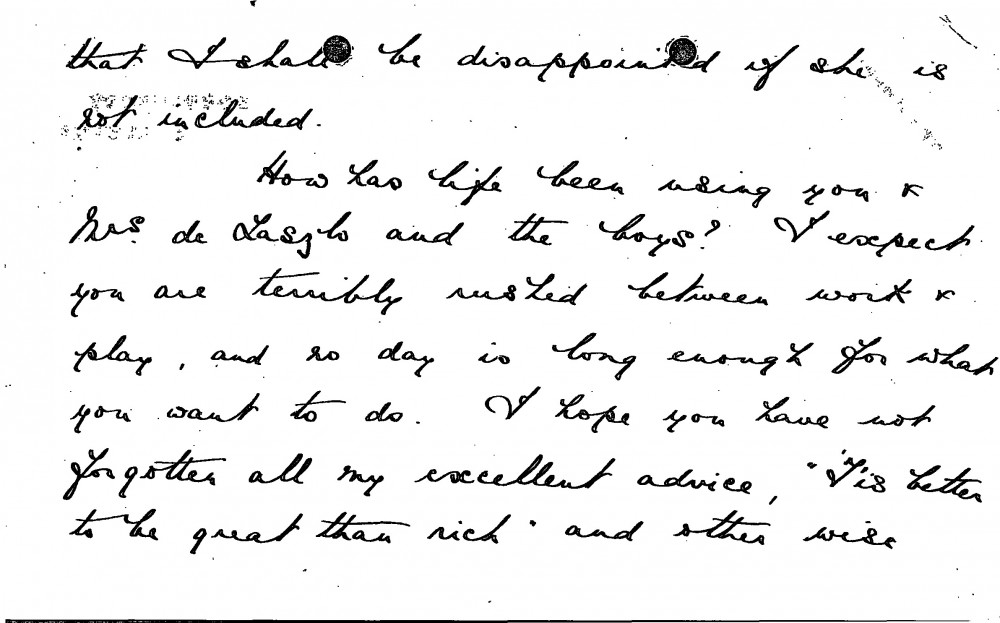 that I shall be disappointed if she is
not included.
How has life been using you &
Mrs. de Laszlo and the boys? I expect
you are terribly rushed between work &
play, and no day is long enough for what
you want to do. I hope you have not
forgotten all my excellent advice, "'Tis better
to be great than rich" and other wise